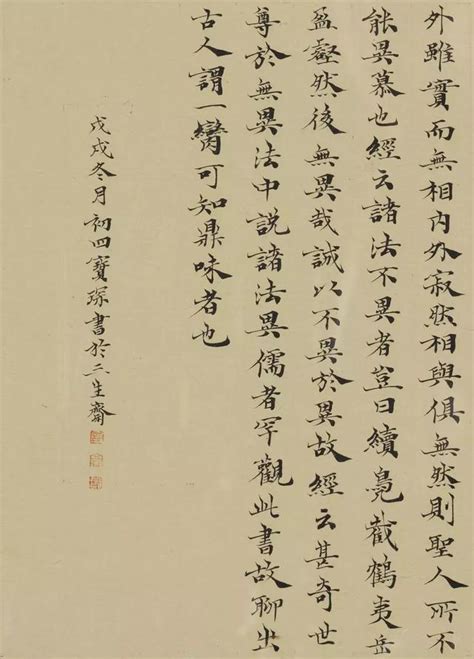 外雖實而無相內外寂然相與俱無然則聖人所不
能異慕也經云諸法不異者豈曰續鳧截鶴夷岳
盈壑然後無異哉誠以不異於異故經云甚奇世
尊於無異法中說諸法異儒者罕觀此書故聊出
古人謂一臠可知鼎味者也
戊戌冬月初四寶琛書於二生齋